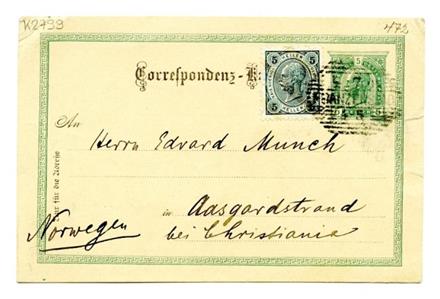 K2799
472
Correspondenz-K
5 HELLER 5
5
An
Herrn Edvard Munch
Nur für die Adresse
in Aasgardstrand
Norwegen
bei Christiania